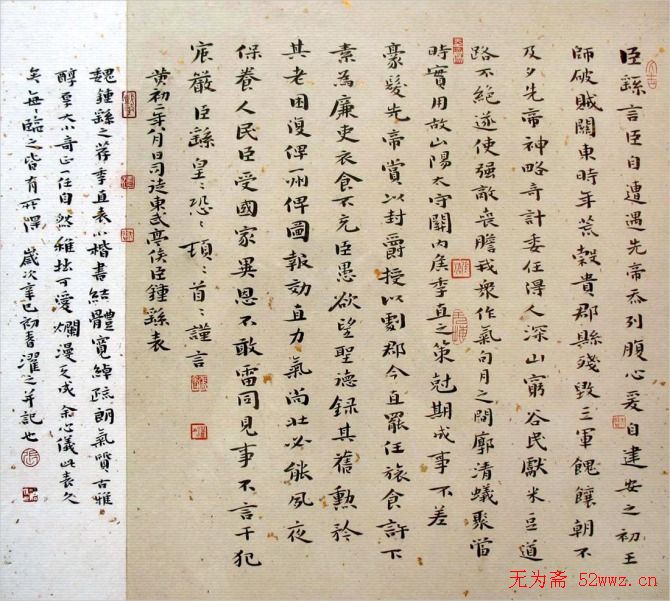 臣繇言臣自遭遇先帝忝列腹心爰自建安之初王
師破贼關東時年荒穀貴郡縣殘毀三軍餽饟朝不
及夕先帝神略奇計委任得人深山窮谷民獻米豆道
路不絶遂使强敵喪膽我衆作氣旬月之間廓清蟻聚當
時實用故山陽太守關内侯李直之策尅期成事不差
豪髮先帝賞以封爵授以劇郡今直罷任旅食許下
素為廉吏衣食不充臣愚欲望聖德録其舊勳矜
其老困復俾一州俾圖報効直力氣尚壯必能夙夜
保養人民臣受國家異恩不敢雷同見事不言干犯
宸嚴臣繇皇〻恐〻頓〻首〻謹言
黄初二年八月日司徒東武亭侯臣鍾繇表
魏鍾繇之荐季直表小楷書結體寬綽疏朗氣質古雅
醇厚大小奇正一任自然雅拙可愛爛漫天成余心儀此表久
矣每臨之皆有所得 歲次辛巳初春濯之并記也
无为斋 52wwz.cn